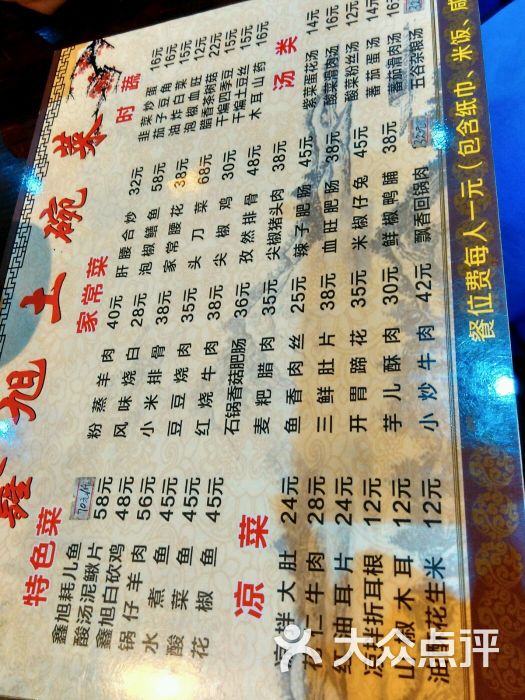 鑫旭土碗菜
特色菜
鑫旭耗儿鱼 70元/份
酸汤泥鳅片 58元
鑫旭白砍鸡 48元
锅仔羊肉 56元
水煮鱼 45元
酸菜鱼 45元
花椒鱼 45元
凉菜
凉拌大肚 24元
仁牛肉 28元
红油耳片 24元
凉拌折耳根 12元
山椒木耳 12元
油酥花生米 12元
家常菜
粉蒸羊肉 40元
风味烧白 28元
小米排骨 38元
豆豆烧肉 35元
红烧牛肉 38元
石锅香菇肥肠 36元
麦粑腊肉 35元
鱼香肉丝 25元
三鲜肚片 38元
开胃蹄花 35元
芋儿酥肉 30元
小炒牛肉 42元
肝腰合炒 32元
泡椒鳝鱼 58元
家常腰花 38元
头刀菜 68元
尖椒鸡 30元
孜然排骨 48元
尖椒猪头肉 38元
辣子肥肠 45元
血旺肥肠 38元
米椒仔兔 45元
鲜椒鸭脯 38元
飘香回锅肉
时蔬
韭菜炒蛋 16元
茄子豆角 16元
油炸白菜 15元
泡椒血旺 12元
腊香茶树菇 22元
干煸四季豆 15元
干煸土豆丝 15元
木耳山药 16元
汤类
紫菜蛋花汤 14元
酸菜滑肉汤 16元
酸菜粉丝汤 12元
番茄蛋汤 14元
番茄滑肉汤 16元
五谷杂粮汤
餐位费每人一元（包含纸巾、米饭、咸
大众点评